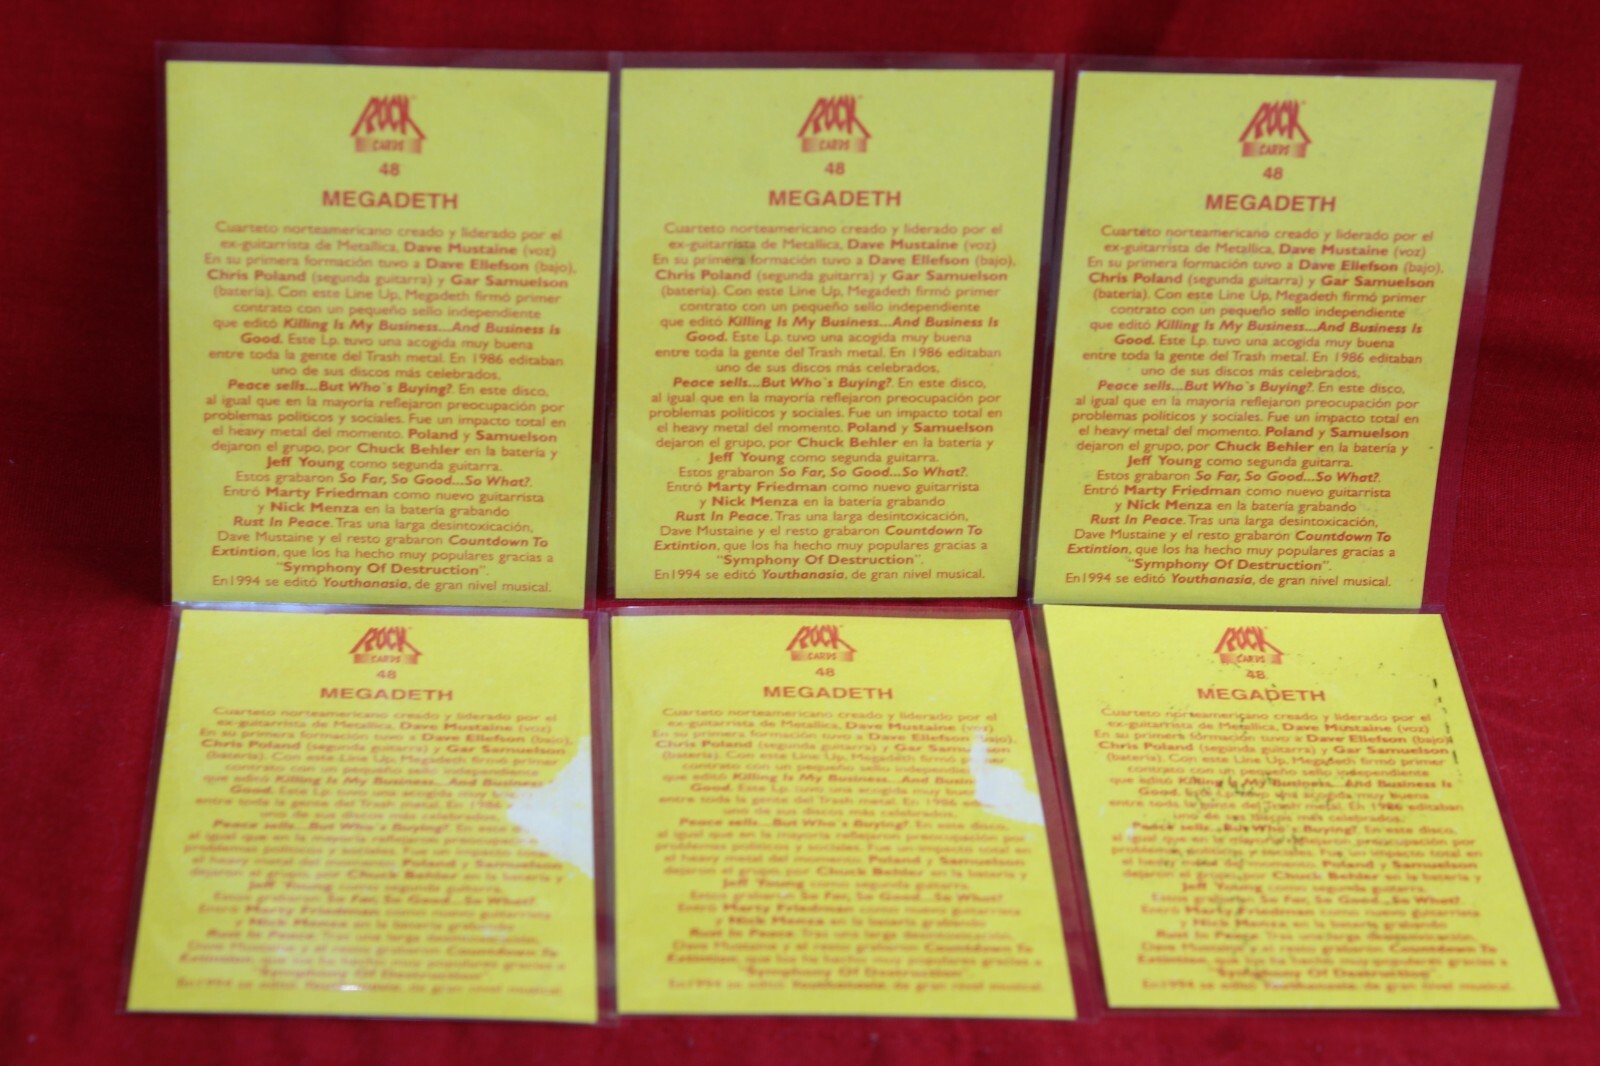 ROCK
CARDS
48
MEGADETH
Cuarteto norteamericano creado y liderado por el
ex-guitarrista de Metallica, Dave Mustaine (voz)
En su primera formación tuvo a Dave Ellefson (bajo),
Chris Poland (segunda guitarra) y Gar Samuelson
(batería). Con este Line Up, Megadeth firmó primer
contrato con un pequeño sello independiente
que editó Killing Is My Business...And Business Is
Good. Este Lp. tuvo una acogida muy buena
entre toda la gente del Trash metal. En 1986 editaban
uno de sus discos más celebrados,
Peace sells...But Who`s Buying?. En este disco,
al igual que en la mayoría reflejaron preocupación por
problemas políticos y sociales. Fue un impacto total en
el heavy metal del momento. Poland y Samuelson
dejaron el grupo, por Chuck Behler en la batería y
Jeff Young como segunda guitarra.
Estos grabaron So Far, So Good...So What?.
Entró Marty Friedman como nuevo guitarrista
y Nick Menza en la batería grabando
Rust In Peace. Tras una larga desintoxicación,
Dave Mustaine y el resto grabaron Countdown To
Extintion, que los ha hecho muy populares gracias a
"Symphony Of Destruction".
En1994 se editó Youthanasia, de gran nivel musical.
ROCK
CARDS
48
MEGADETH
Cuarteto norteamericano creado y liderado por el
ex-guitarrista de Metallica, Dave Mustaine (voz)
En su primera formación tuvo a Dave Ellefson (bajo),
Chris Poland (segunda guitarra) y Gar Samuelson
(batería). Con este Line Up, Megadeth firmó primer
contrato con un pequeño sello independiente
que editó Killing Is My Business...And Business Is
Good. Este Lp. tuvo una acogida muy buena
entre toda la gente del Trash metal. En 1986 editaban
uno de sus discos más celebrados,
Peace sells...But Who`s Buying?. En este disco,
al igual que en la mayoría reflejaron preocupación por
problemas políticos y sociales. Fue un impacto total en
el heavy metal del momento. Poland y Samuelson
dejaron el grupo, por Chuck Behler en la batería y
Jeff Young como segunda guitarra.
Estos grabaron So Far, So Good...So What?.
Entró Marty Friedman como nuevo guitarrista
y Nick Menza en la batería grabando
Rust In Peace. Tras una larga desintoxicación,
Dave Mustaine y el resto grabaron Countdown To
Extintion, que los ha hecho muy populares gracias a
"Symphony Of Destruction".
En1994 se editó Youthanasia, de gran nivel musical.
ROCK
CARDS
48
MEGADETH
Cuarteto norteamericano creado y liderado por el
ex-guitarrista de Metallica, Dave Mustaine (voz)
En su primera formación tuvo a Dave Ellefson (bajo),
Chris Poland (segunda guitarra) y Gar Samuelson
(batería). Con este Line Up, Megadeth firmó primer
contrato con un pequeño sello independiente
que editó Killing Is My Business...And Business Is
Good. Este Lp. tuvo una acogida muy buena
entre toda la gente del Trash metal. En 1986 editaban
uno de sus discos más celebrados,
Peace sells...But Who`s Buying?. En este disco,
al igual que en la mayoría reflejaron preocupación por
problemas políticos y sociales. Fue un impacto total en
el heavy metal del momento. Poland y Samuelson
dejaron el grupo, por Chuck Behler en la batería y
Jeff Young como segunda guitarra.
Estos grabaron So Far, So Good...So What?.
Entró Marty Friedman como nuevo guitarrista
y Nick Menza en la batería grabando
Rust In Peace. Tras una larga desintoxicación,
Dave Mustaine y el resto grabaron Countdown To
Extintion, que los ha hecho muy populares gracias a
"Symphony Of Destruction".
En1994 se editó Youthanasia, de gran nivel musical.
ROCK
CARDS
48
MEGADETH
Cuarteto norteamericano creado y liderado por el
ex-guitarrista de Metallica, Dave Mustaine (voz)
En su primera formación tuvo a Dave Ellefson (bajo),
Chris Poland (segunda guitarra) y Gar Samuelson
(batería). Con este Line Up, Megadeth firmó primer
contrato con un pequeño sello independiente
que editó Killing Is My Business...And Business Is
Good. Este Lp. tuvo una acogida muy
entre toda la gente del Trash metal. En 1986
uno de sus discos más celebrados,
Peace sells...But Who`s Buying?. En este
al igual que en la mayoría reflejaron
problemas políticos y sociales. Fue un impacto
el heavy metal del momento. Poland y Samuelson
dejaron el grupo, por Chuck Behler en la batería y
Jeff Young como segunda guitarra.
Estos grabaron So Far, So Good...So What?.
Entró Marty Friedman como nuevo guitarrista
y Nick Menza en la batería grabando
Rust In Peace. Tras una larga desintoxicación,
Dave Mustaine y el resto grabaron Countdown To
Extintion, que los ha hecho muy populares gracias a
"Symphony Of Destruction".
En1994 se editó Youthanasia, de gran nivel musical.
ROCK
CARDS
48
MEGADETH
Cuarteto norteamericano creado y liderado por el
ex-guitarrista de Metallica, Dave Mustaine (voz)
En su primera formación tuvo a Dave Ellefson
Chris Poland (segunda guitarra) y Gar
(batería). Con este Line Up, Megadeth firmó
contrato con un pequeño sello
que editó Killing Is My Business...And
Good. Este Lp. tuvo una acogida muy
entre toda la gente del Trash metal. En 1986
uno de sus discos más celebrados,
Peace sells...But Who`s Buying?. En este disco,
al igual que en la mayoría reflejaron preocupación por
problemas políticos y sociales. Fue un impacto total en
el heavy metal del momento. Poland y Samuelson
dejaron el grupo, por Chuck Behler en la batería y
Jeff Young como segunda guitarra.
Estos grabaron So Far, So Good...So What?.
Entró Marty Friedman como nuevo guitarrista
y Nick Menza en la batería grabando
Rust In Peace. Tras una larga desintoxicación,
Dave Mustaine y el resto grabaron Countdown To
Extintion, que los ha hecho muy populares gracias a
"Symphony Of Destruction".
En1994 se editó Youthanasia, de gran nivel musical.
ROCK
CARDS
48
MEGADETH
Cuarteto norteamericano creado y liderado por el
ex-guitarrista de Metallica, Dave Mustaine (voz)
En su primera formación tuvo a Dave Ellefson (bajo),
Chris Poland (segunda guitarra) y Gar Samuelson
(batería). Con este Line Up, Megadeth firmó primer
contrato con un pequeño sello independiente
que editó Killing Is My Business...And Business Is
Good. Este Lp. tuvo una acogida muy buena
entre toda la gente del Trash metal. En 1986 editaban
uno de sus discos más celebrados,
Peace sells...But Who`s Buying?. En este disco,
al igual que en la mayoría reflejaron preocupación por
problemas políticos y sociales. Fue un impacto total en
el heavy metal del momento. Poland y Samuelson
dejaron el grupo, por Chuck Behler en la batería y
Jeff Young como segunda guitarra.
Estos grabaron So Far, So Good...So What?.
Entró Marty Friedman como nuevo guitarrista
y Nick Menza en la batería grabando
Rust In Peace. Tras una larga desintoxicación,
Dave Mustaine y el resto grabaron Countdown To
Extintion, que los ha hecho muy populares gracias a
"Symphony Of Destruction".
En1994 se editó Youthanasia, de gran nivel musical.